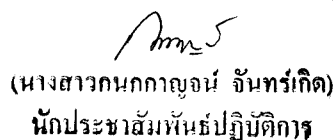 (นางสาวกนกกาญจน์ จันทร์เกิด)
นักประชาสัมพันธ์ปฏิบัติการ